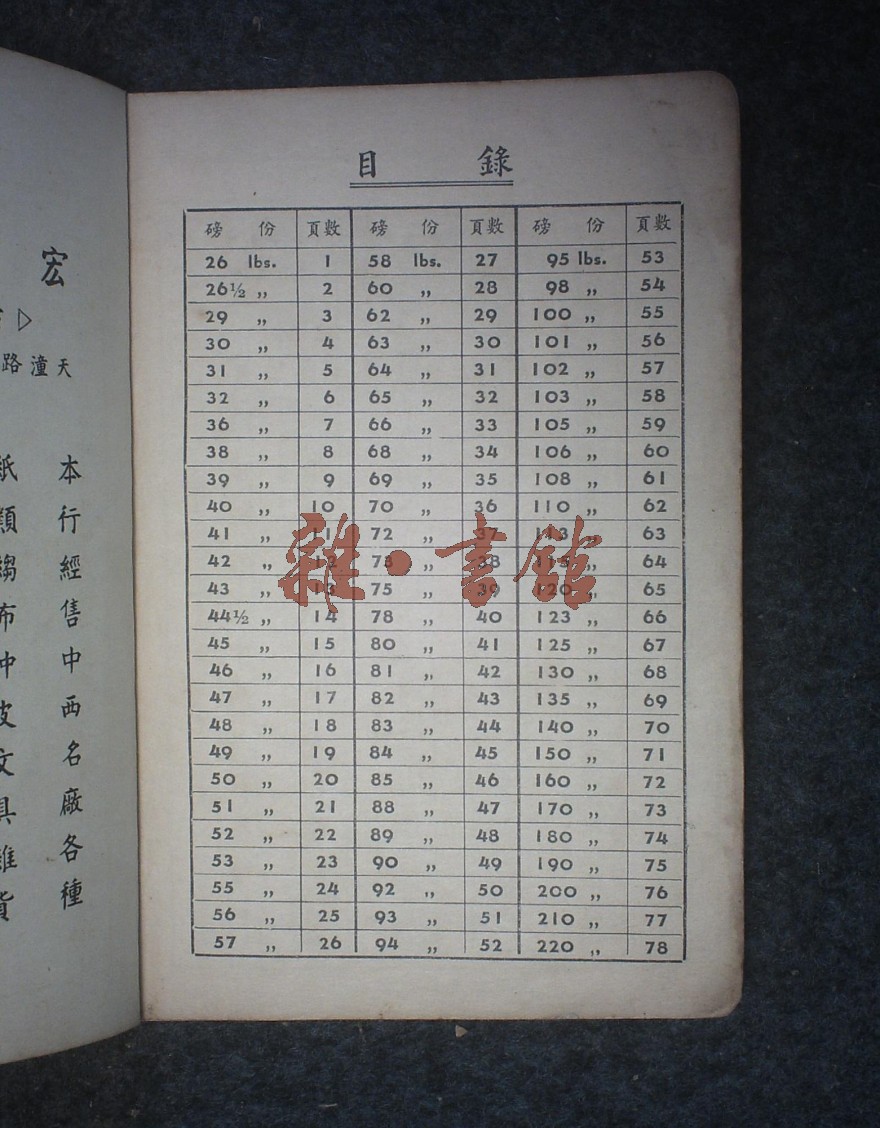 宏
路潼天
本行經售中西名廠各種
紙類縐布呷皮文具雜貨
目 錄
磅 份 頁數 磅 份 頁數 磅 份 頁數
26 lbs. 1 58 lbs. 27 95 lbs. 53
26½ ,, 2 60 ,, 28 98 ,, 54
29 ,, 3 62 ,, 29 100 ,, 55
30 ,, 4 63 ,, 30 101 ,, 56
31 ,, 5 64 ,, 31 102 ,, 57
32 ,, 6 65 ,, 32 103 ,, 58
36 ,, 7 66 ,, 33 105 ,, 59
38 ,, 8 68 ,, 34 106 ,, 60
39 ,, 9 69 ,, 35 108 ,, 61
40 ,, 10 70 ,, 36 110 ,, 62
41 ,, 11 72 ,, 37 113 ,, 63
42 ,, 12 73 ,, 38 115 ,, 64
43 ,, 13 75 ,, 39 120 ,, 65
44½ ,, 14 78 ,, 40 123 ,, 66
45 ,, 15 80 ,, 41 125 ,, 67
46 ,, 16 81 ,, 42 130 ,, 68
47 ,, 17 82 ,, 43 135 ,, 69
48 ,, 18 83 ,, 44 140 ,, 70
49 ,, 19 84 ,, 45 150 ,, 71
50 ,, 20 85 ,, 46 160 ,, 72
51 ,, 21 88 ,, 47 170 ,, 73
52 ,, 22 89 ,, 48 180 ,, 74
53 ,, 23 90 ,, 49 190 ,, 75
55 ,, 24 92 ,, 50 200 ,, 76
56 ,, 25 93 ,, 51 210 ,, 77
57 ,, 26 94 ,, 52 220 ,, 78
雜·書館